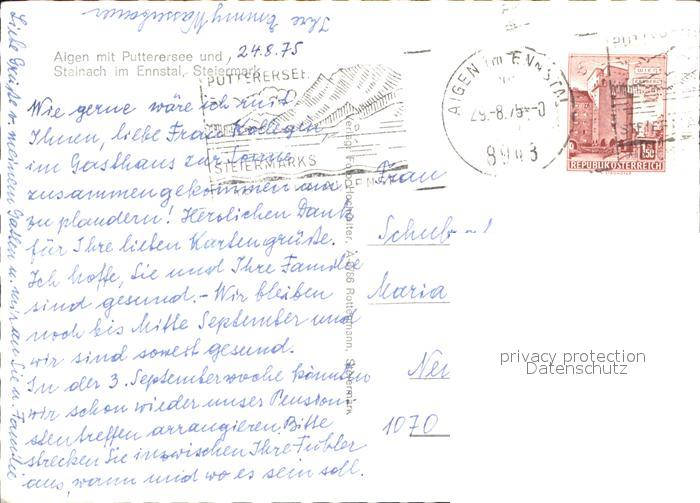 Aigen mit Putterersee und
Stainach im Ennstal, Steiermark
24.8.75
Wie gerne wäre ich mit
Ihnen, liebe Frau Kollegin,
im Gasthaus zur Sonne
zusammengekommen um
zu plaudern! Herzlichen Dank
für Ihre lieben Kartengrüße.
Ich hoffe, Sie und Ihre Familie
sind gesund. - Wir bleiben
noch bis Mitte September und
wir sind soweit gesund.
In der 3. Septemberwoche könnten
wir schon wieder unser Pension-
stentreffen arrangieren. Bitte
strecken Sie inzwischen Ihre Fühler
aus, wann und wo es sein soll.
Liebe Grüße v. meinem Gatten u. mir an Sie u. Familie
Ihre Emmy
PUTTERERSEE
STEIERMARKS
AIGEN im ENNSTAL
8943
REPUBLIK ÖSTERREICH
WIEN
1.50
Frau
Maria
1070
Rottenmann, Steiermark
privacy protection
Datenschutz